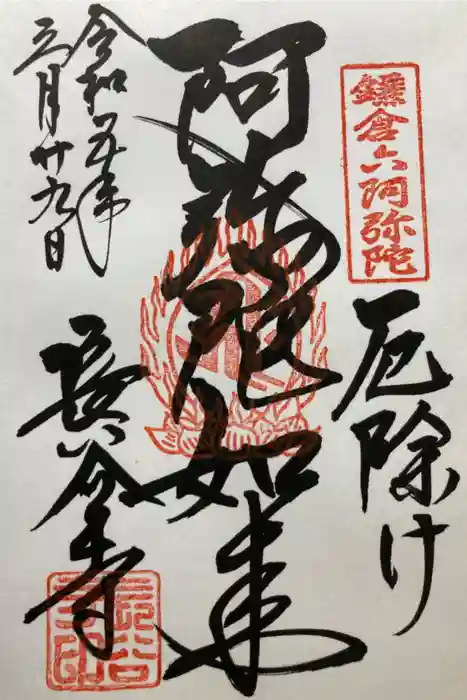 鎌倉六阿弥陀
厄除け
阿弥陀如来
令和五年
三月廿九日
長谷寺